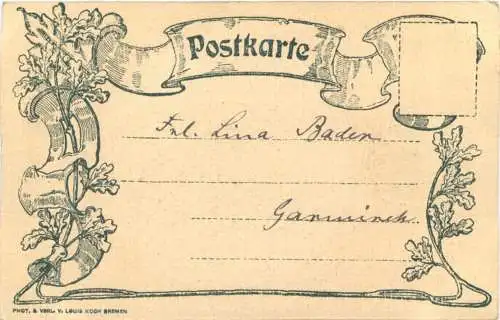 Postkarte
Frl. Lina Bader
Garmisch
PHOT. & VERL. V. LOUIS KOOP BREMEN